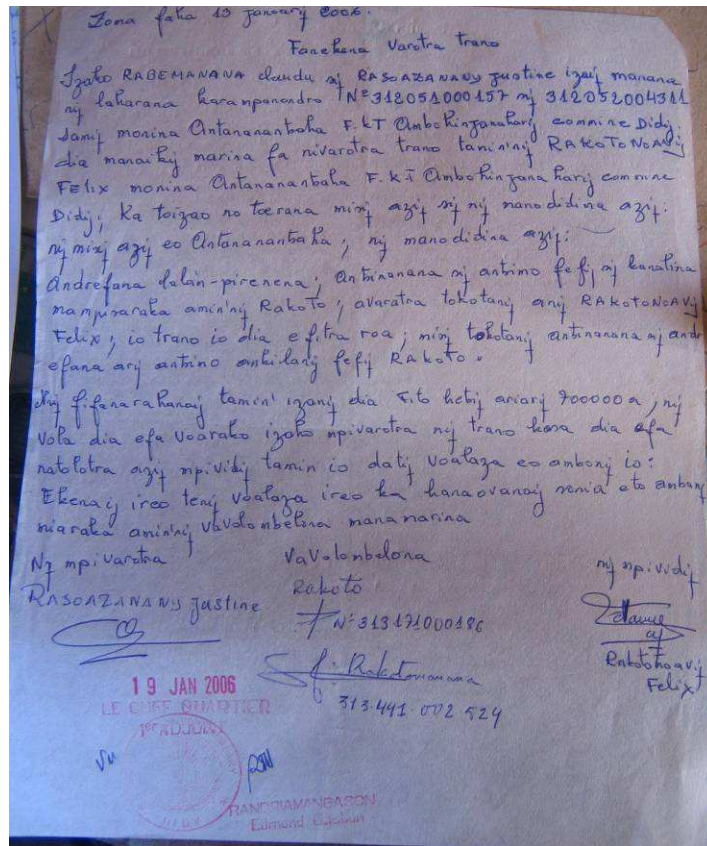 Zoma faha 13 january 2006.
Fanekena Varotra trano
Izaho RABEMANANA claudu sy RASOAZANANY Justine izay manana
ny laharana karampanondro N°312051000157 sy 312052004311
samy monina Antanananbaha F.KT Ambohinjanahary commine Didy
dia manaiky marina fa nivarotra trano tamin'ny RAKOTONOAVY
Felix monina Antanananbaha F.K.T Ambohinjana hary commine
Didy; ka toizao no toerana misy azy sy ny manodidina azy:
ny misy azy eo Antanananbaha, ny manodidina azy:
Andrefana lalan-pirenena; antsinanana sy antsimo fefy sy kanalina
mampisaraka amin'ny RaKoTo, avaratra tokotany any RAKoToNoAVy
Felix; io trano io dia efitra roa; misy tokotany antsinanana sy andr
efana ary antsimo ankilany fefy RAKoTo.
Ny fifanarahanay tamin' izany dia Fito hetsy ariary 700000a, ny
vola dia efa voarako izaho mpivarotra ny trano kosa dia efa
natolotra azy mpividy tamin io daty voalaza eo ambony io:
Ekenay ireo teny voalaza ireo ka hanaovanay sonia eto ambany
miaraka amin'ny vavolombelona manamarina
Ny mpivarotra Vavolombelona ny mpividy
RASOAZANANY Justine Rakoto
N° 313171000186
Rakotonoavy
Felix
Rakotomanana
313.441.002.524
19 JAN 2006
LE CHEF QUARTIER
1er ADJOINT
Vu
RANDRIAMANGASON
Edmond